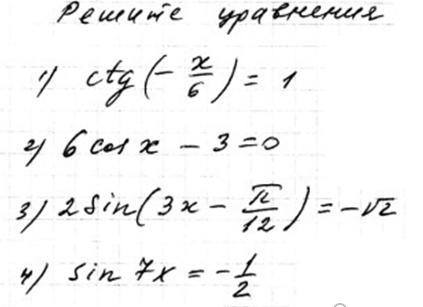 Решите уравнения
1) ctg(-x/6) = 1
2) 6 cos x - 3 = 0
3) 2 sin(3x - π/12) = -√2
4) sin 7x = -1/2